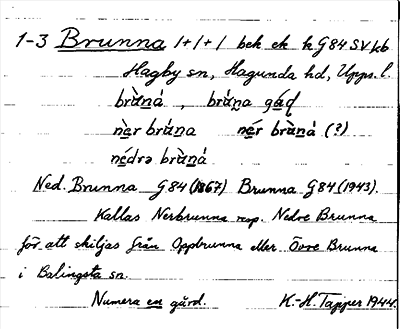 1-3 Brunna 1+1+1 bek ek k G84 SV kb
Hagby sn, Hagunda hd, Upps. l.
brùn̲á , brùn̲a gáḍ
nèr brún̲a nér brùn̲á (?)
nédrə brùn̲á
Ned. Brunna G84 (1867) Brunna G84 (1943).
Kallas Nerbrunna resp. Nedre Brunna
för att skiljas från Oppbrunna eller Övre Brunna
i Balingsta sn.
Numera en gård. K.-H. Tapper 1944.